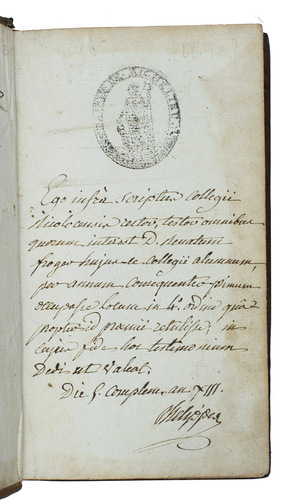 Ego infrà scriptus collegii
rector, testor omnibus
quorum interest D. Renatum
froger hujus-ce Collegii alumnum,
per annum Consequenter primum
Occupasse locum in 4º ordine quâ
propter id præmii retulisse, in
Cujus fide hoc testimonium
Dedi ut Valeat.
Die 5. Complem. an. XIII.